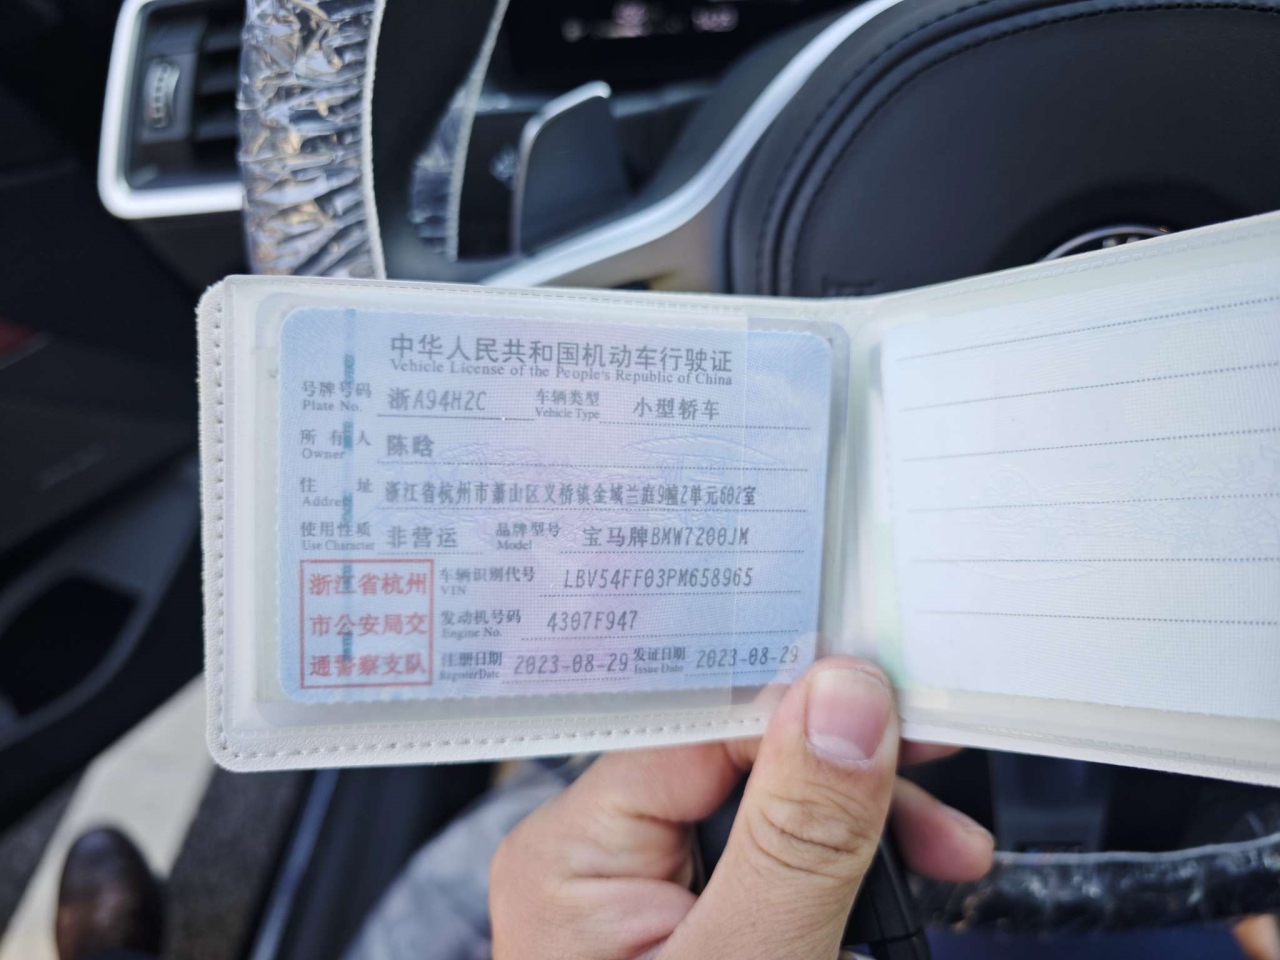 中华人民共和国机动车行驶证
Vehicle License of the People's Republic of China
号牌号码 浙A94H2C 车辆类型 小型轿车
Plate No. Vehicle Type
所有人 陈晗
Owner
住址 浙江省杭州市萧山区义桥镇金城兰庭9幢2单元602室
Address
使用性质 非营运 品牌型号 宝马牌BMW7200JM
Use Character Model
浙江省杭州
市公安局交
通警察支队
车辆识别代号 LBV54FF03PM658965
VIN
发动机号码 4307F947
Engine No.
注册日期 2023-08-29 发证日期 2023-08-29
Register Date Issue Date